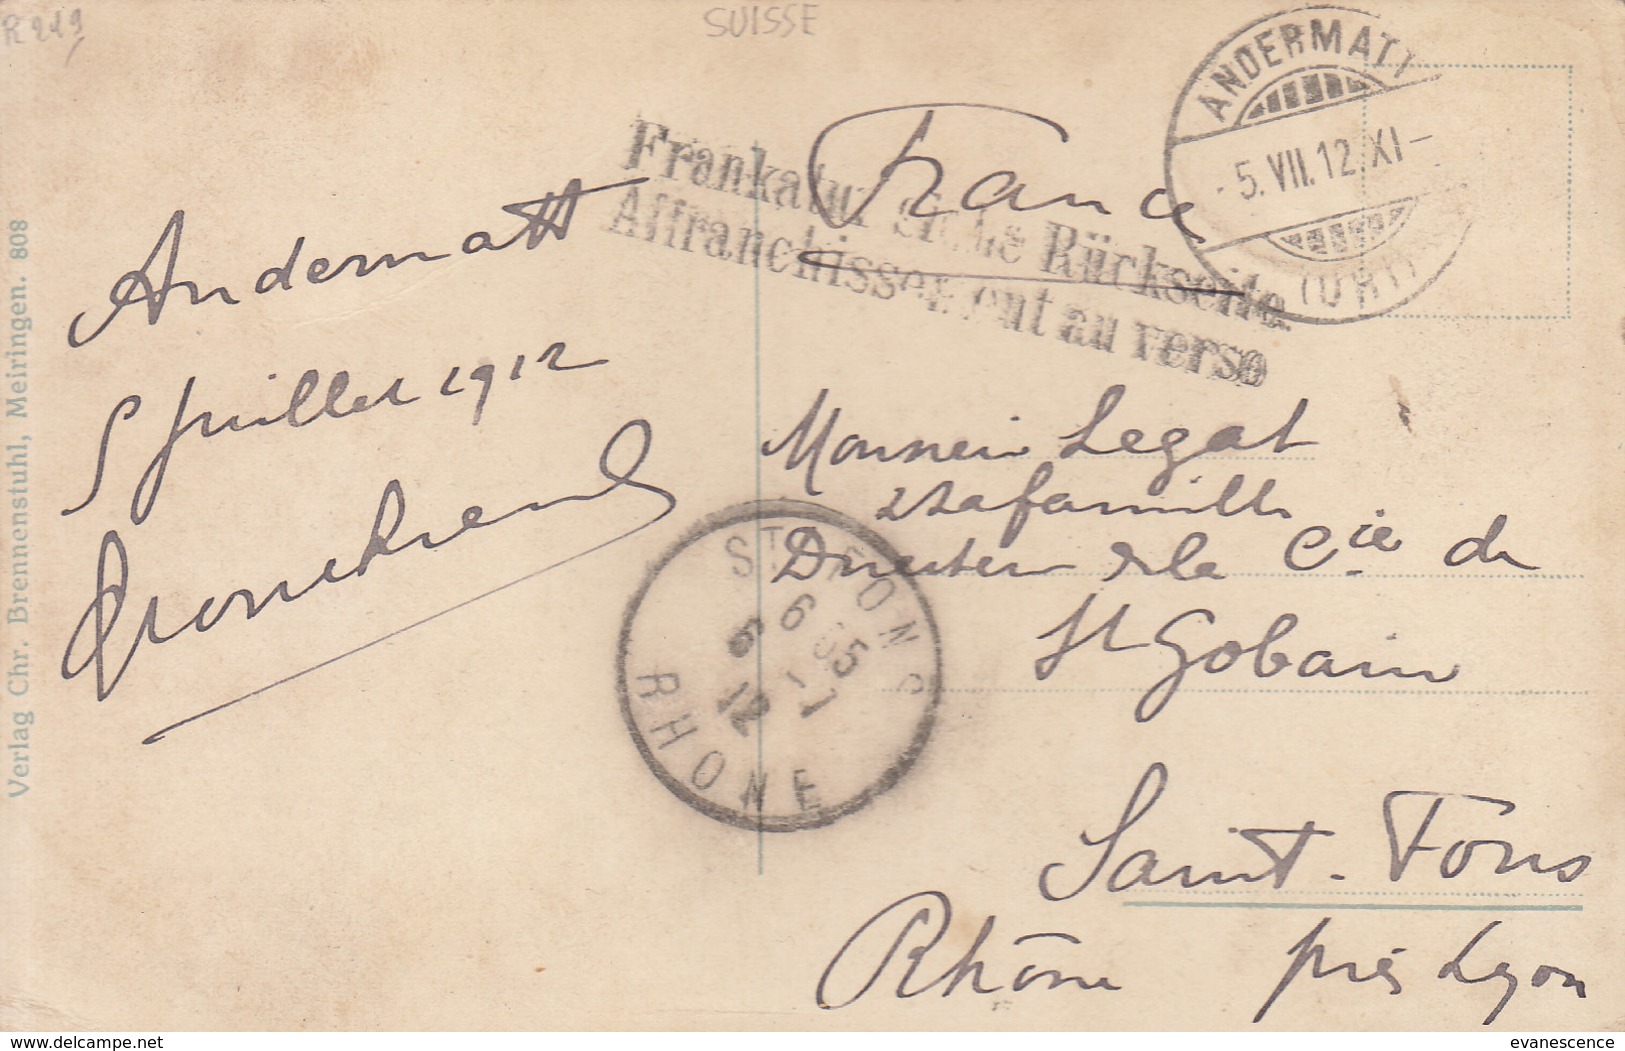 R 219
SUISSE
ANDERMATT
5. VII. 12. XI -
(URI)
France
Frankatur siehe Rückseite
Affranchissement au verso
Andermatt
5 Juillet 1912
Monsieur Legat
& sa famille
Directeur de la Cie de
St Gobain
Saint-Fons
Rhône près Lyon
ST FONS
6 35
6 - 7
12
RHONE
Verlag Chr. Brennenstuhl, Meiringen. 808
evanescence